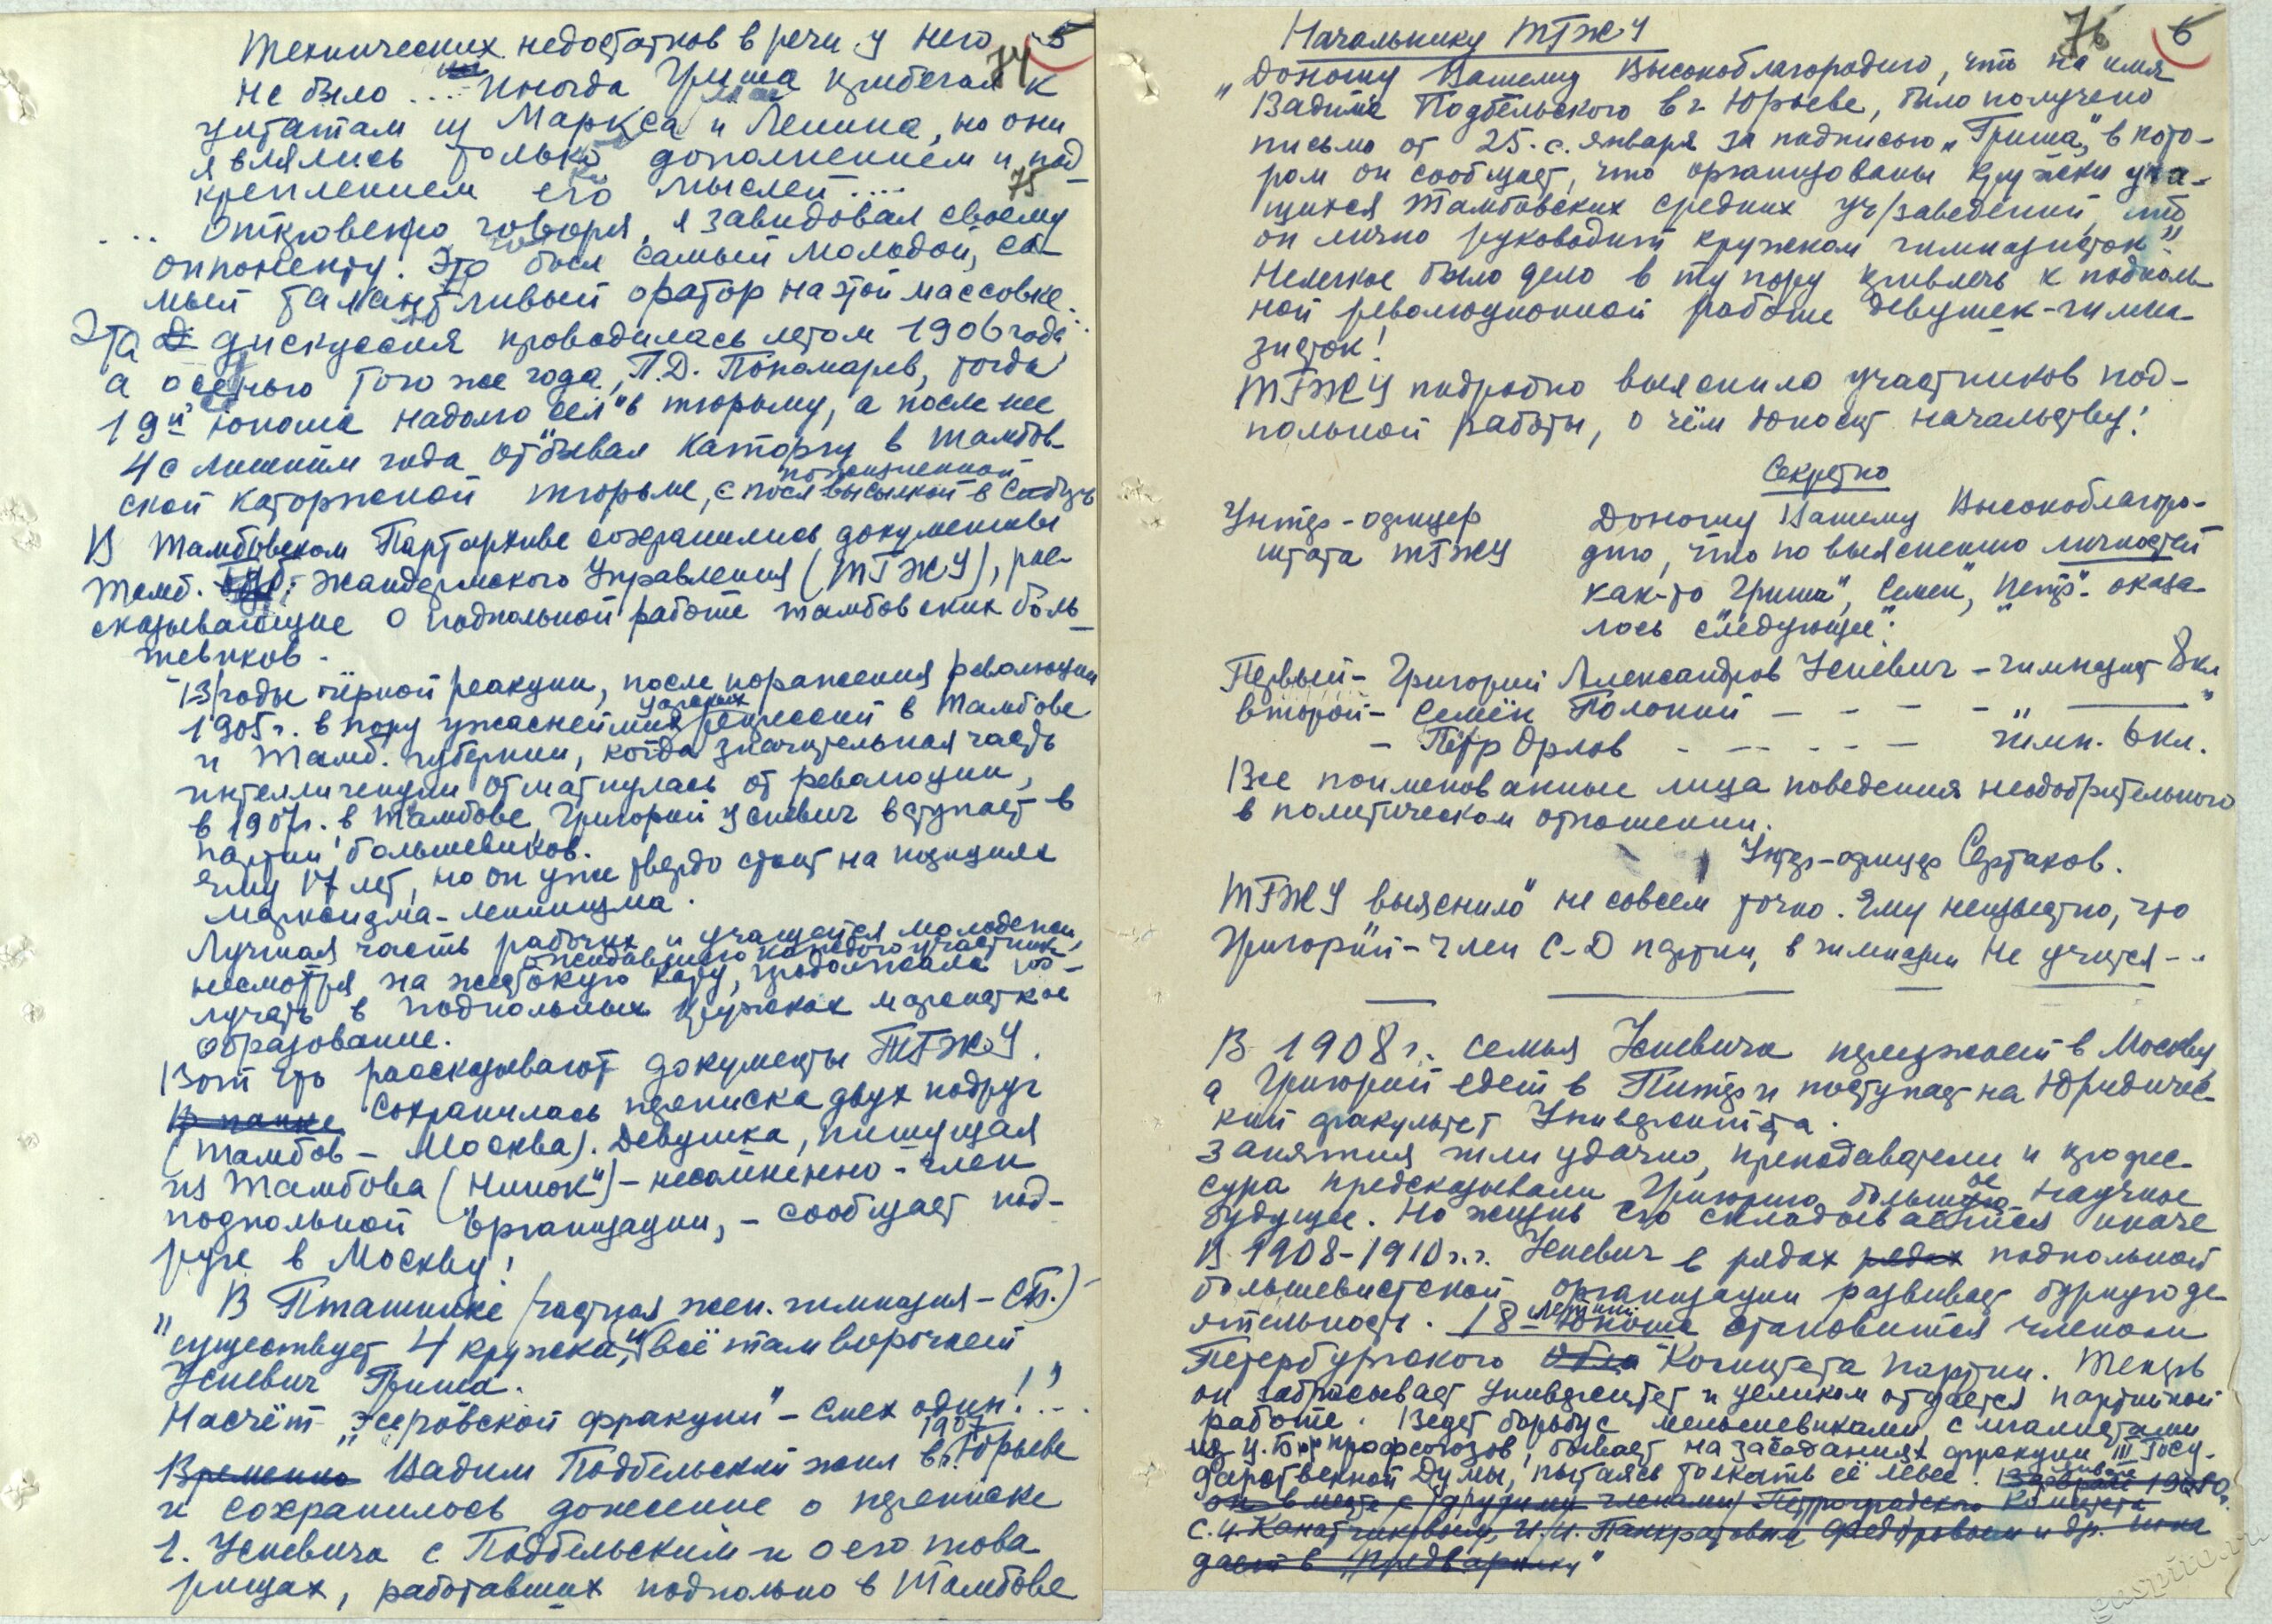 Технических недостатков в речи у него 5
74
не было... Иногда Гриша прибегал к
цитатам из Маркса и Ленина, но они
являлись только дополнением и под-
креплением его мыслей....
75
... Откровенно говоря, я завидовал своему
оппоненту. Это был самый молодой, са-
мый талантливый оратор на этой массовке.
Эта дискуссия проводилась летом 1906 года,
а осенью того же года, П.Д. Пономарев, тогда
19й юноша надолго "сел" в тюрьму, а после нее
4 с лишним года отбывал каторгу в Тамбов-
ской каторжной тюрьме, с пожизненной высылкой в Сибирь
В Тамбовском Партархиве сохранились документы
Тамб. Жандармского Управления (ТГЖУ), рас-
сказывающие о подпольной работе тамбовских боль-
шевиков.
В годы чёрной реакции, после поражения революции
1905 г. в пору ужаснейших царских репрессий в Тамбове
и Тамб. губернии, когда значительная часть
интеллигенции отшатнулась от революции,
в 1907 г. в Тамбове, Григорий Усиевич вступает в
партии большевиков.
Ему 17 лет, но он уже твердо стоит на позициях
марксизма-ленинизма.
Лучшая часть рабочих и учащейся молодежи,
несмотря на жестокую кару, ожидавшую каждого участника, продолжала по-
лучать в подпольных кружках марксистское
образование.
Вот что рассказывают документы ТГЖУ.
В папке Сохранилась переписка двух подруг
(Тамбов - Москва). Девушка, пишущая
из Тамбова ("Нинок") - несомненно - член
подпольной организации, - сообщает под-
руге в Москву:
"В Пташнике (частная жен. гимназия - СТ.)
существует 4 кружка, и всё там ворочает
Усиевич Гриша.
Насчёт "эсеровской фракции" - смех один!..."
Временно 1907 Вадим Подбельский жил в г. Юрьеве
и сохранилось донесение о переписке
Г. Усиевича с Подбельским и о его това-
рищах, работавших подпольно в Тамбове
76 6
Начальнику ТГЖУ
"Доношу Вашему Высокоблагородию, что на имя
Вадима Подбельского в г. Юрьеве, было получено
письмо от 25. с. января за подписью "Гриша", в кото-
ром он сообщает, что организованы кружки уча-
щихся Тамбовских средних уч/заведений, что
он лично руководит кружком гимназисток"
Нелегкое было дело в ту пору привлечь к подполь-
ной революционной работе девушек-гимна-
зисток!
ТГЖУ подробно выяснило участников под-
польной работы, о чём доносит начальству:
Секретно
Унтер-офицер
штата ТГЖУ
Доношу Вашему Высокоблагоро-
дию, что по выяснению личностей
как-то "Гриша", "Семен", "Петр" - оказа-
лось следующее:
Первый - Григорий Александров Усиевич - гимназист 8 кл
второй - Семён Полонский - - - - " ——— "
- Пётр Орлов - - - - - гимн. 6 кл.
Все поименованные лица поведения неодобрительного
в политическом отношении.
Унтер-офицер Сертаков.
ТГЖУ "выяснило" не совсем точно. Ему неизвестно, что
Григорий - член С-Д партии, в гимназии не учится - .
В 1908 г. семья Усиевича переезжает в Москву,
а Григорий едет в Питер и поступает на Юридичес-
кий факультет Университета.
Занятия шли удачно, преподаватели и профес-
сура предсказывали Григорию большое научное
будущее. Но жизнь его складывается иначе
В 1908-1910 г.г. Усиевич в рядах рядах подпольной
большевистской организации развивает бурную де-
ятельность. 18-летний юноша становится членом
Петербургского Комитета партии. Теперь
он забрасывает университет и целиком отдается партийной
работе. Ведет борьбу с меньшевиками
из Ц. Бюро профсоюзов, бывает на заседаниях фракции III Госу-
дарственной Думы, пытаясь толкать её левее.
он вместе с другими членами Петроградского Комитета
С.И. Канатчиковым, И.И. Панкратовым, Федоровым и др. попа
дает в "Предварилку"
guspito.ru